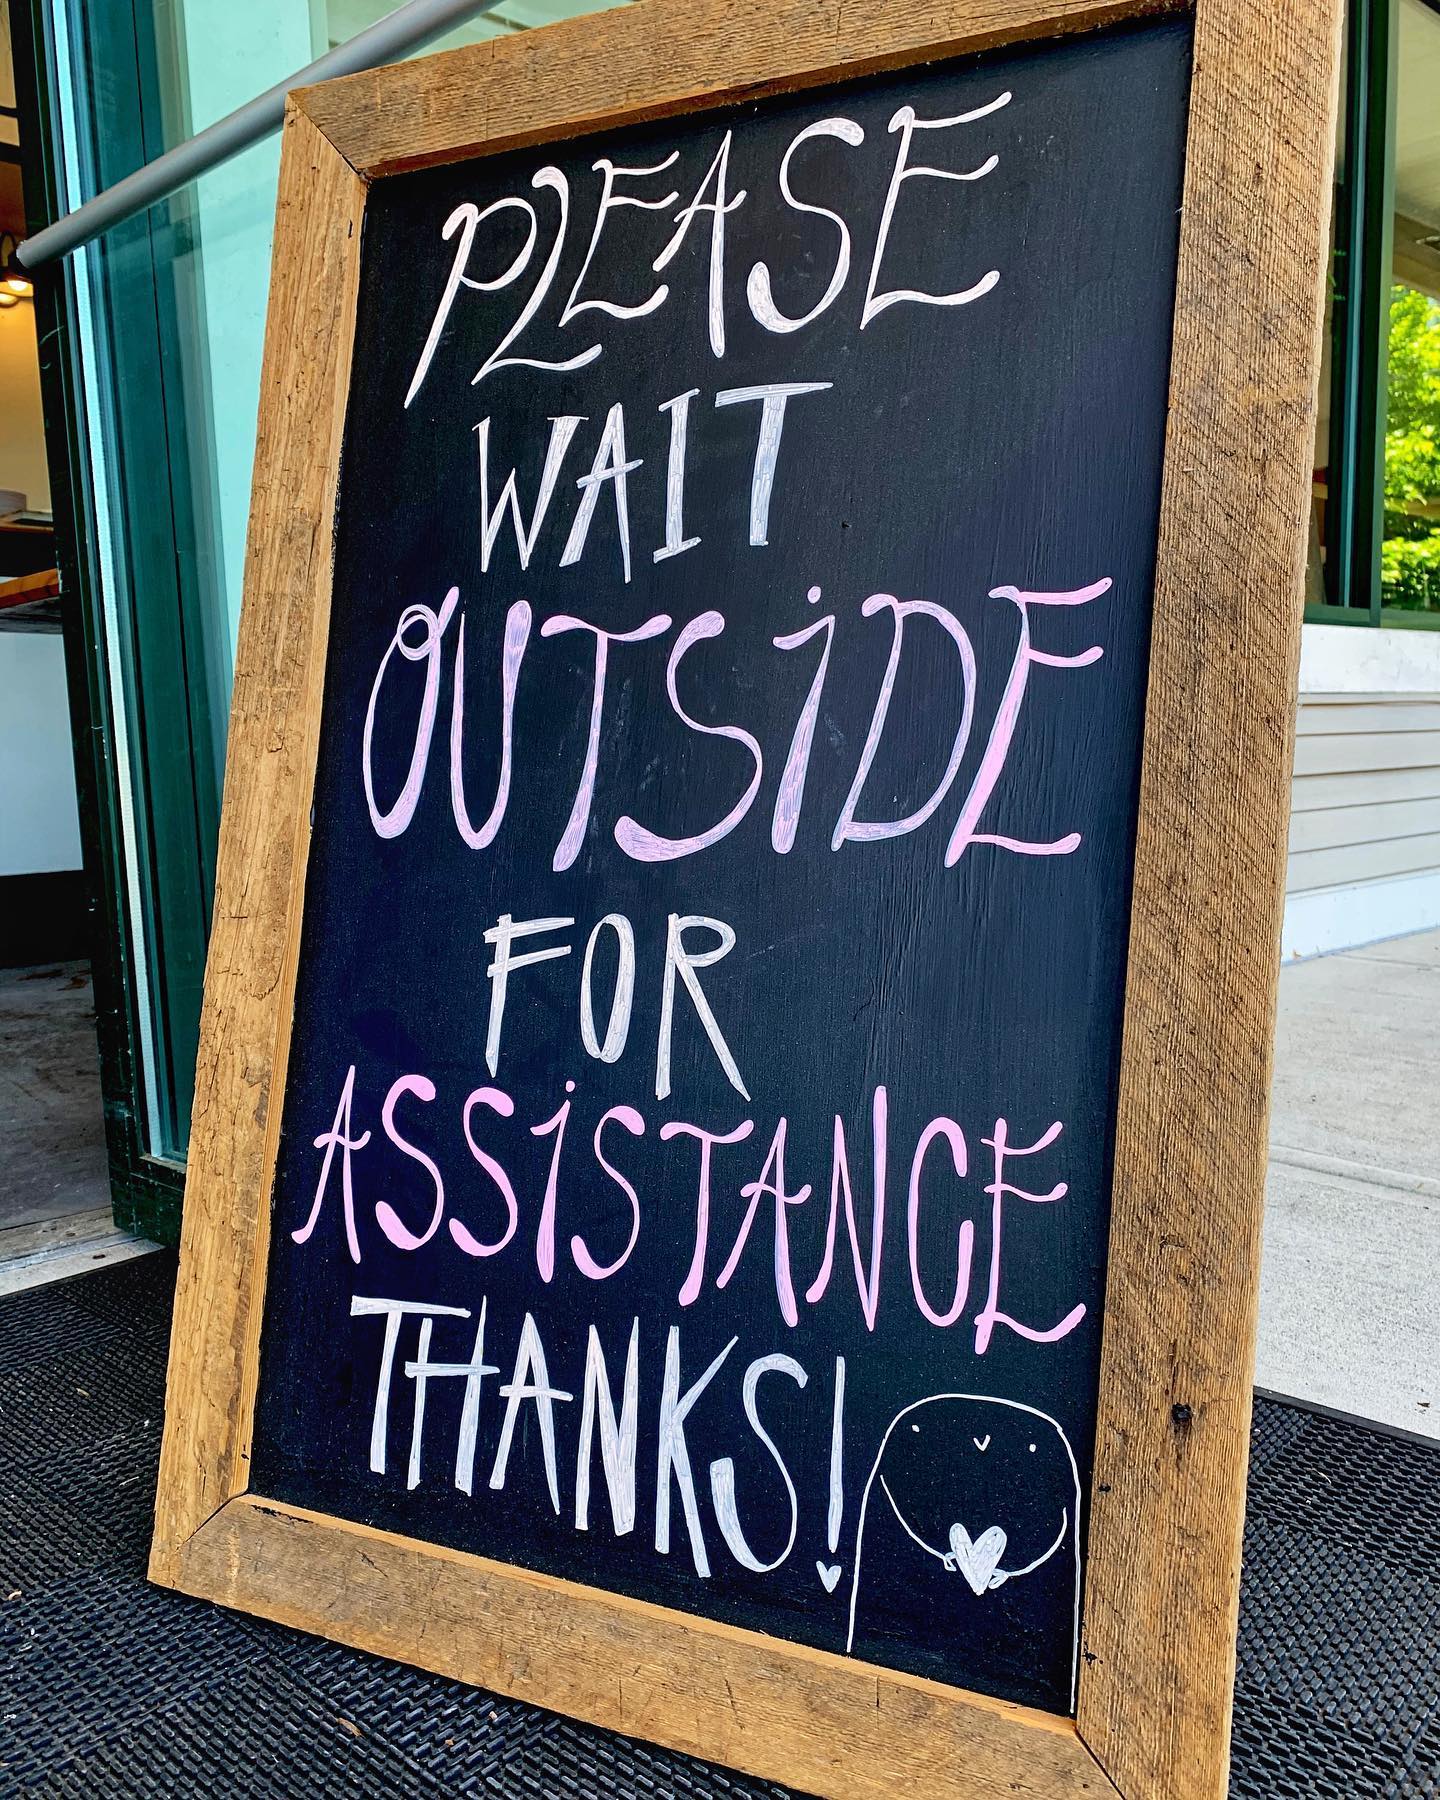 PLEASE
WAIT
OUTSiDE
FOR
ASSiSTANCE
THANKS!